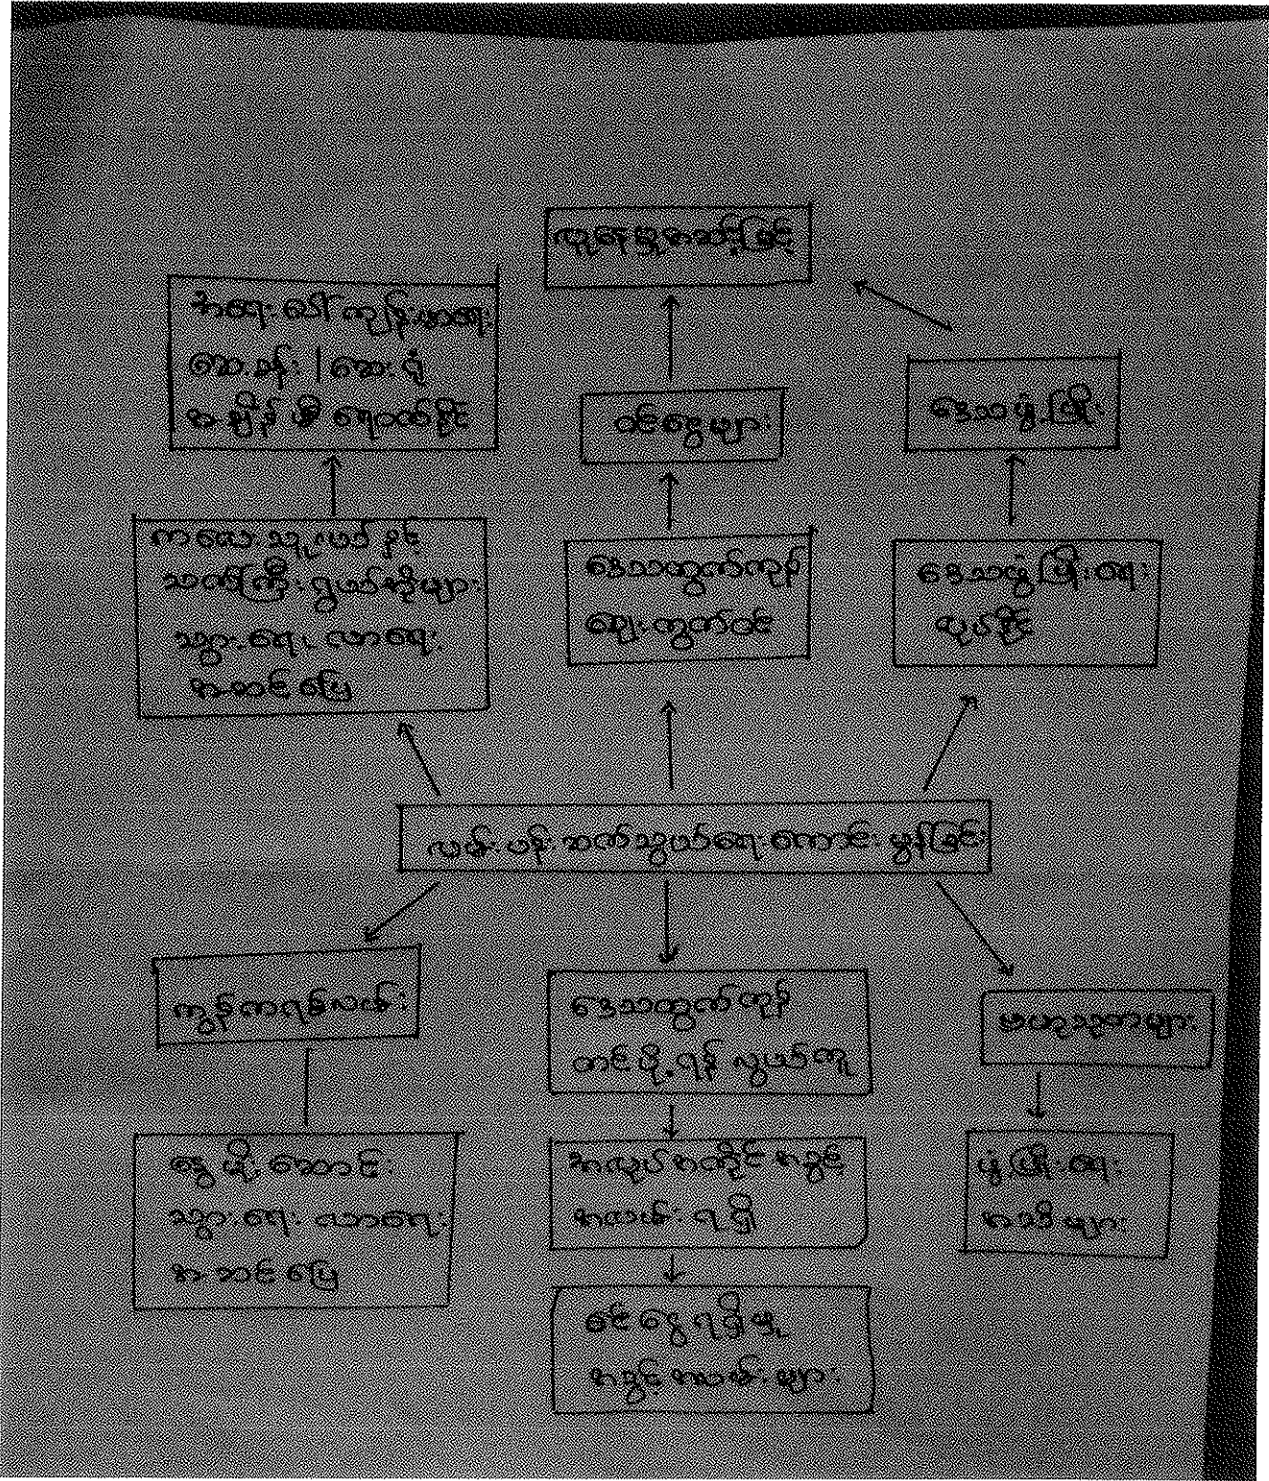 လူနေမှုအဆင့်မြင့်
အရေးပေါ် ကျန်းမာရေး
ဆေးခန်း | ဆေးရုံ
အချိန်မီ ရောက်နိုင်
ဝင်ငွေများ
ဒေသဖွံ့ဖြိုး
ကလေးသူငယ်နှင့်
သက်ကြီးရွယ်အိုများ
သွားရေး လာရေး
အဆင်ပြေ
ဒေသထွက်ကုန်
ဈေးကွက်ဝင်
ဒေသဖွံ့ဖြိုးရေး
လုပ်နိုင်
လမ်းပန်းဆက်သွယ်ရေးကောင်းမွန်ခြင်း
ကွန်ကရစ်လမ်း
ဒေသထွက်ကုန်
တင်ပို့ရန် လွယ်ကူ
ဗဟုသုတများ
နွေ မိုး ဆောင်း
သွားရေး လာရေး
အဆင်ပြေ
အလုပ်အကိုင်အခွင့်
အလမ်း ရရှိ
ဖွံ့ဖြိုးရေး
အသိများ
ဝင်ငွေရရှိမှု
အခွင့်အလမ်းများ